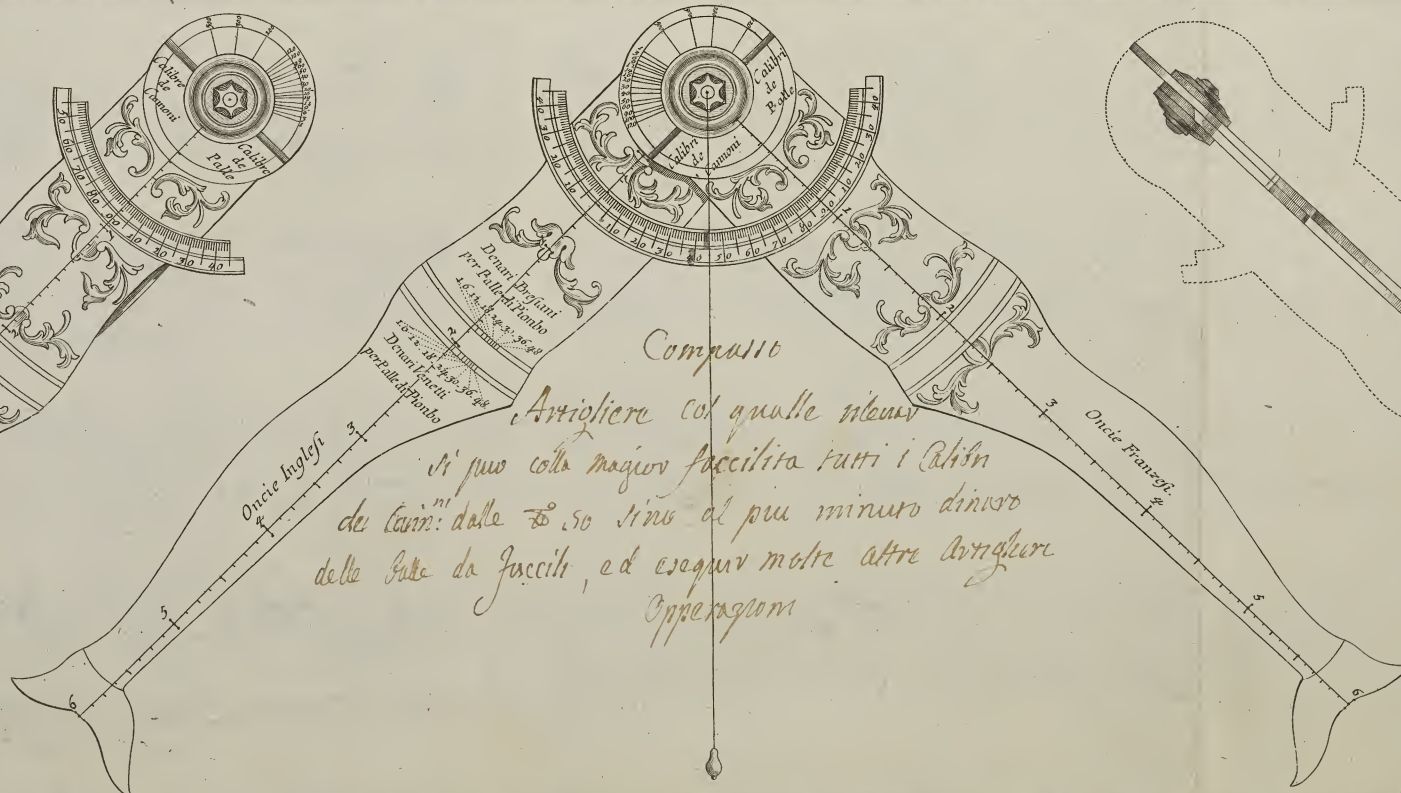 Calibre
de
Cannoni
Calibro
de
Palle
Calibri
de
Palle
Calibri
de
Cannoni
Denari Bresiani
per Palle di Pionbo
1.6.12.18.24.30.36.48
1.6.12.18.24.30.36.48
Denari Venetti
per Palle di Pionbo
Oncie Inglesi
2
3
4
5
6
Oncie Franzesi.
1
2
3
4
5
6
Compasso
Artigliere col qualle rilevar
si puo colla magior faccilita tutti i Calibri
dei Cann.ni dalle 50 sino al piu minuto dinaro
delle Palle da fuccili, ed esequir molte altre Artigliere
Opperazioni